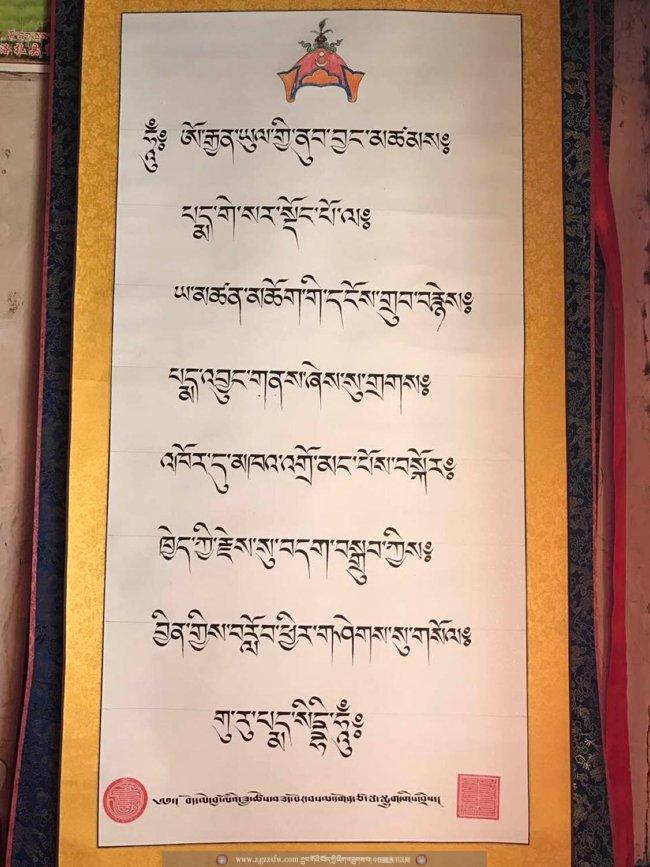 ཧཱུྃ༔ ཨོ་རྒྱན་ཡུལ་གྱི་ནུབ་བྱང་མཚམས༔
པདྨ་གེ་སར་སྡོང་པོ་ལ༔
ཡ་མཚན་མཆོག་གི་དངོས་གྲུབ་བརྙེས༔
པདྨ་འབྱུང་གནས་ཞེས་སུ་གྲགས༔
འཁོར་དུ་མཁའ་འགྲོ་མང་པོས་བསྐོར༔
ཁྱེད་ཀྱི་རྗེས་སུ་བདག་བསྒྲུབ་ཀྱིས༔
བྱིན་གྱིས་བརློབ་ཕྱིར་གཤེགས་སུ་གསོལ༔
གུ་རུ་པདྨ་སིདྡྷི་ཧཱུྃ༔
www.zgzzsfw.com